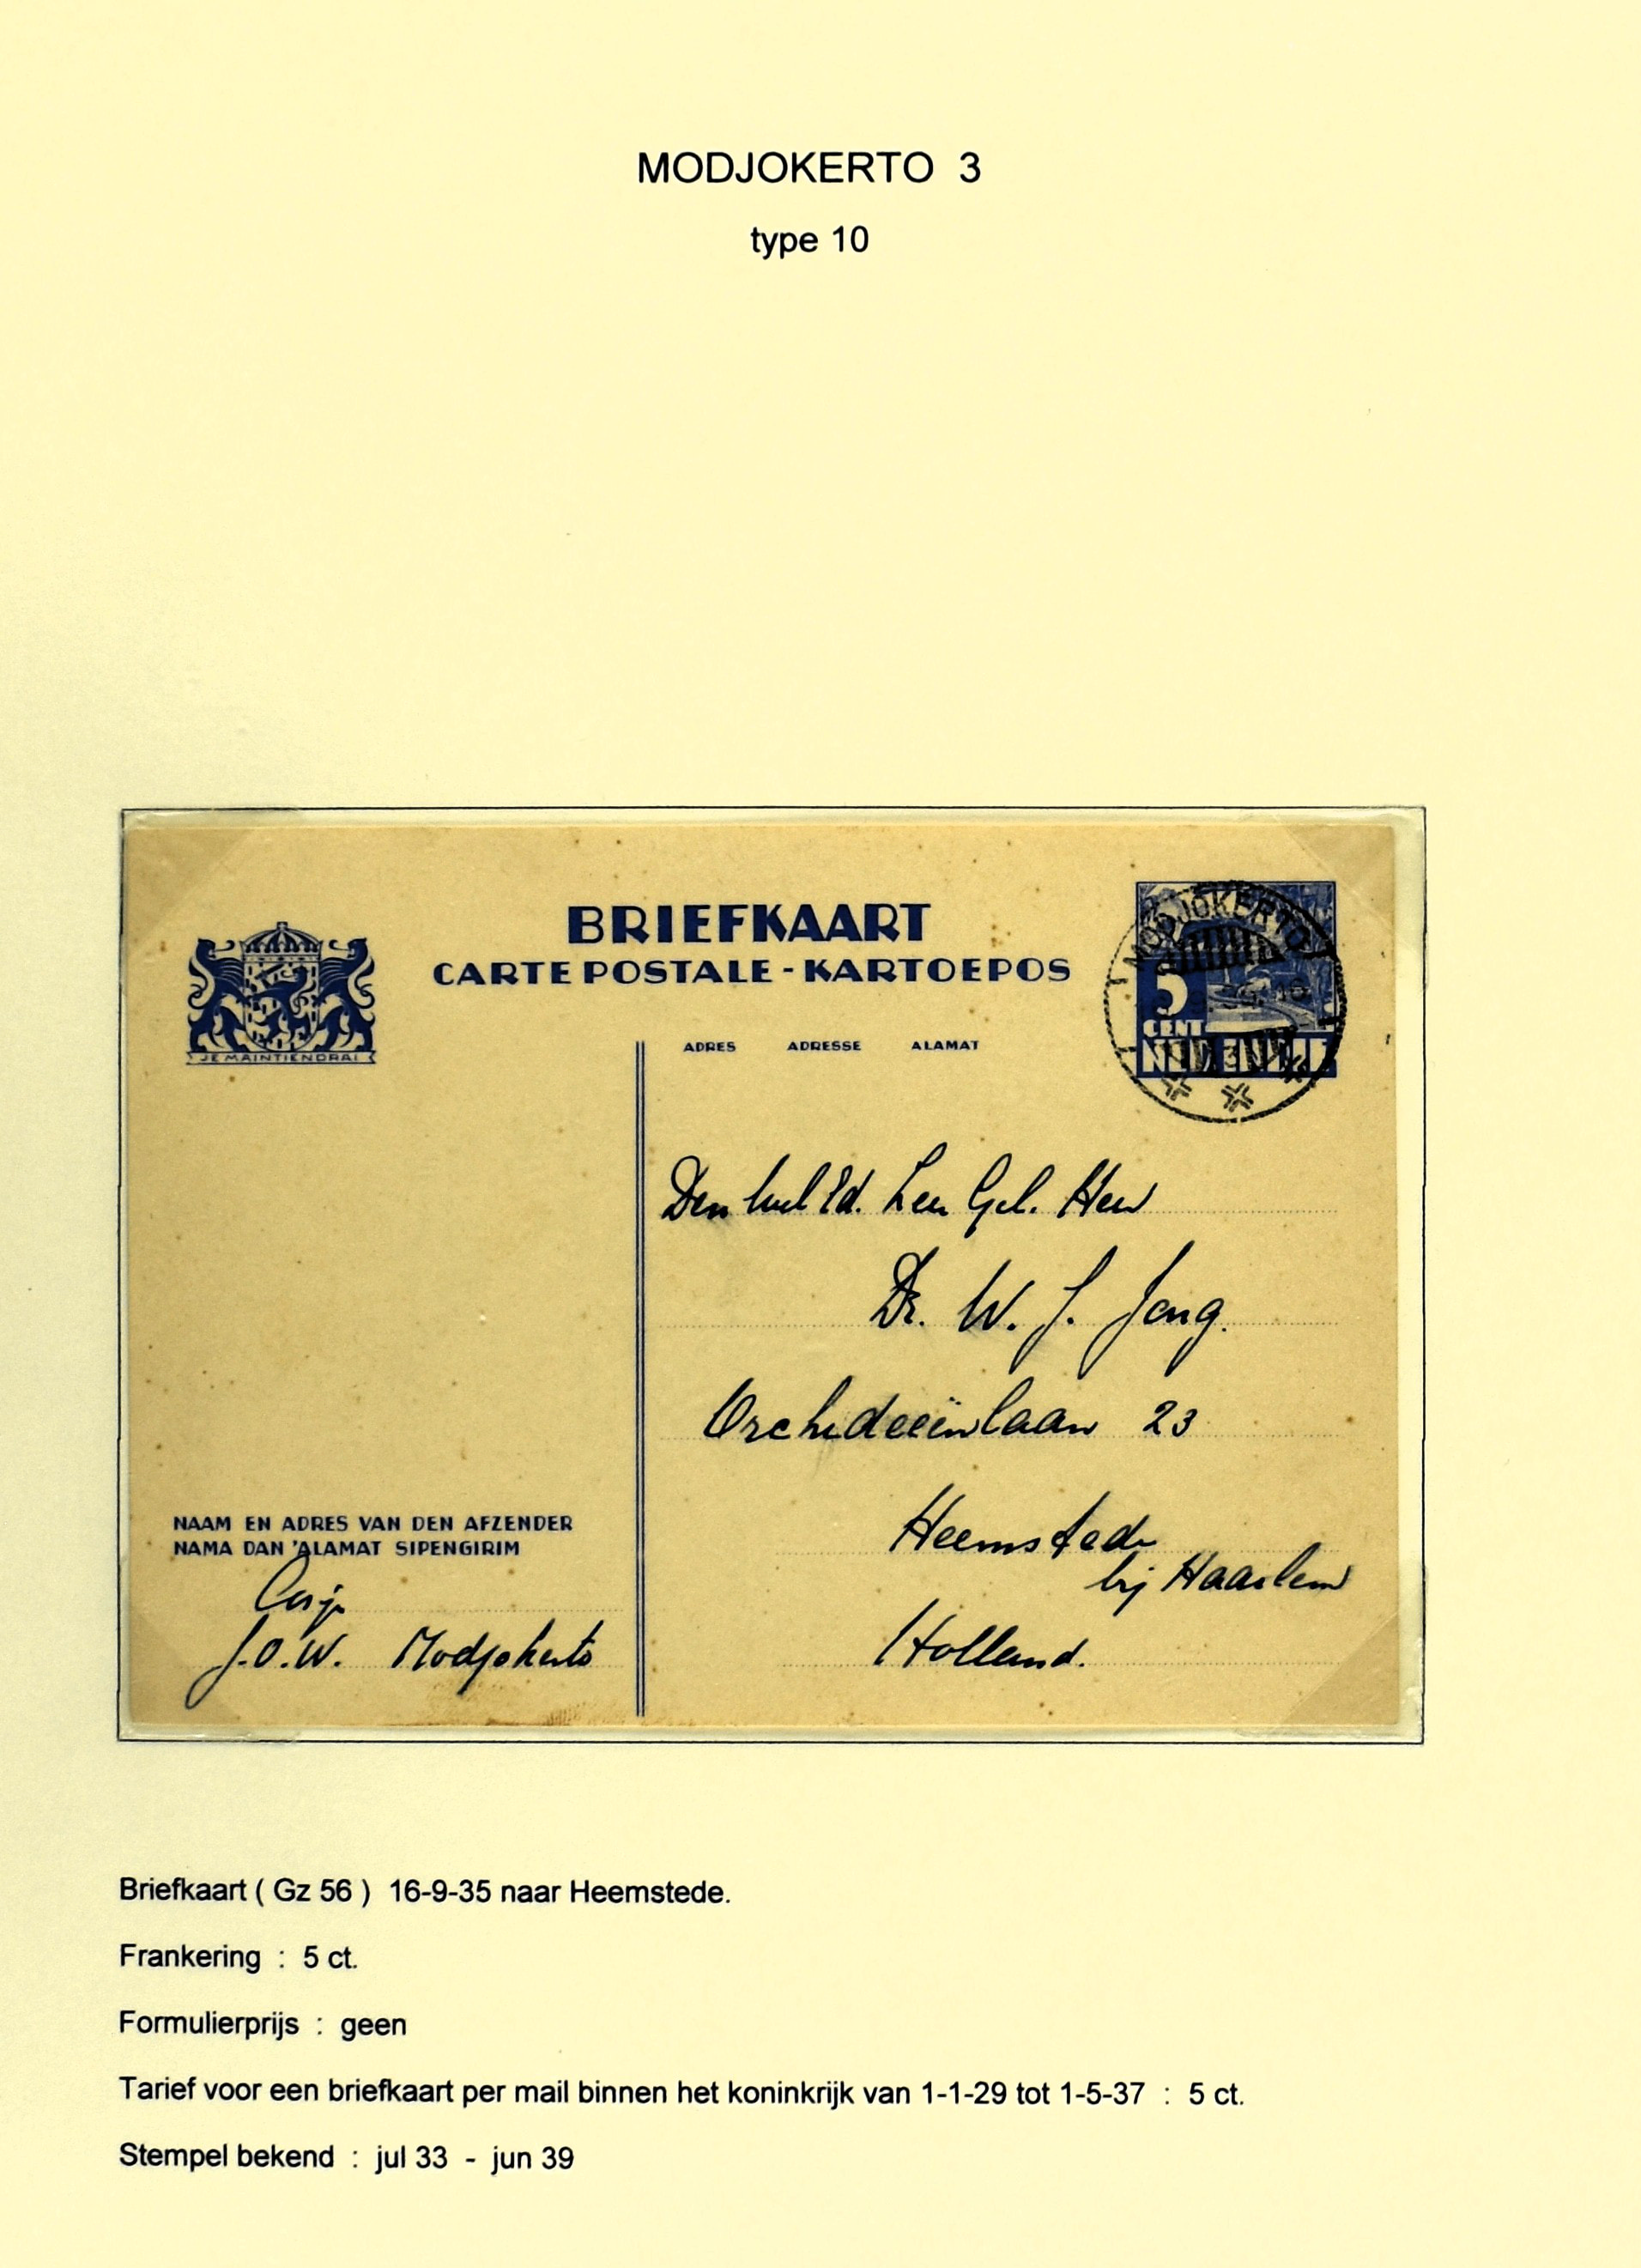 MODJOKERTO 3
type 10
BRIEFKAART
CARTE POSTALE - KARTOEPOS
JE MAINTIENDRAI
ADRES ADRESSE ALAMAT
MODJOKERTO
5
CENT
NED. INDIE
Den Wel Ed. Zeer Gel. Heer
Dr. W. J. Jong.
Orchideeënlaan 23
Heemstede
bij Haarlem
Holland.
NAAM EN ADRES VAN DEN AFZENDER
NAMA DAN 'ALAMAT SIPENGIRIM
J.O.W. Modjokerto
Briefkaart ( Gz 56 ) 16-9-35 naar Heemstede.
Frankering : 5 ct.
Formulierprijs : geen
Tarief voor een briefkaart per mail binnen het koninkrijk van 1-1-29 tot 1-5-37 : 5 ct.
Stempel bekend : jul 33 - jun 39